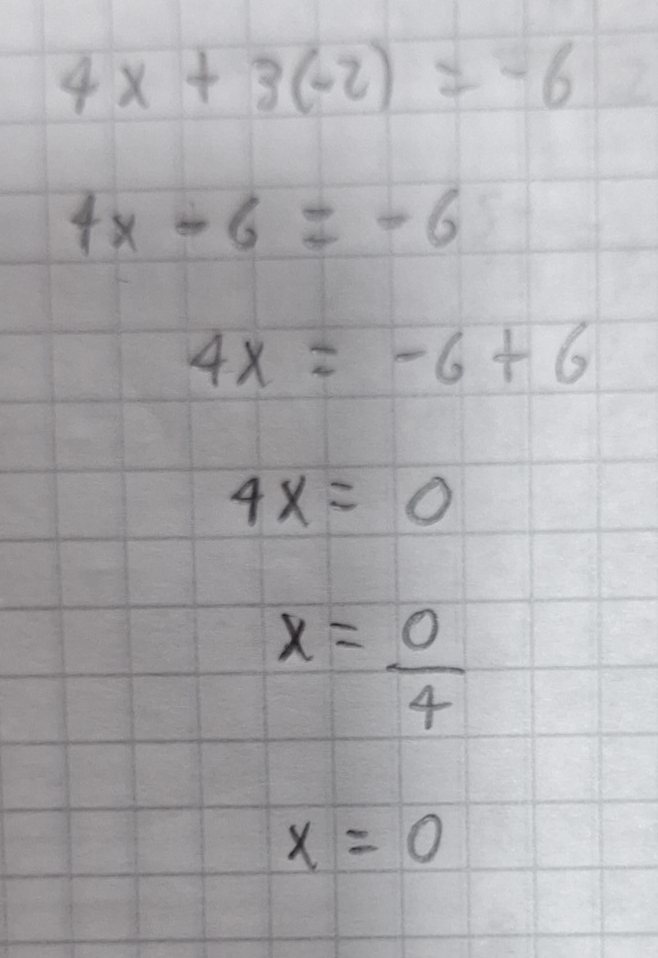 4x + 3(-2) = -6
4x - 6 = -6
4x = -6 + 6
4x = 0
x = 0
4
x = 0